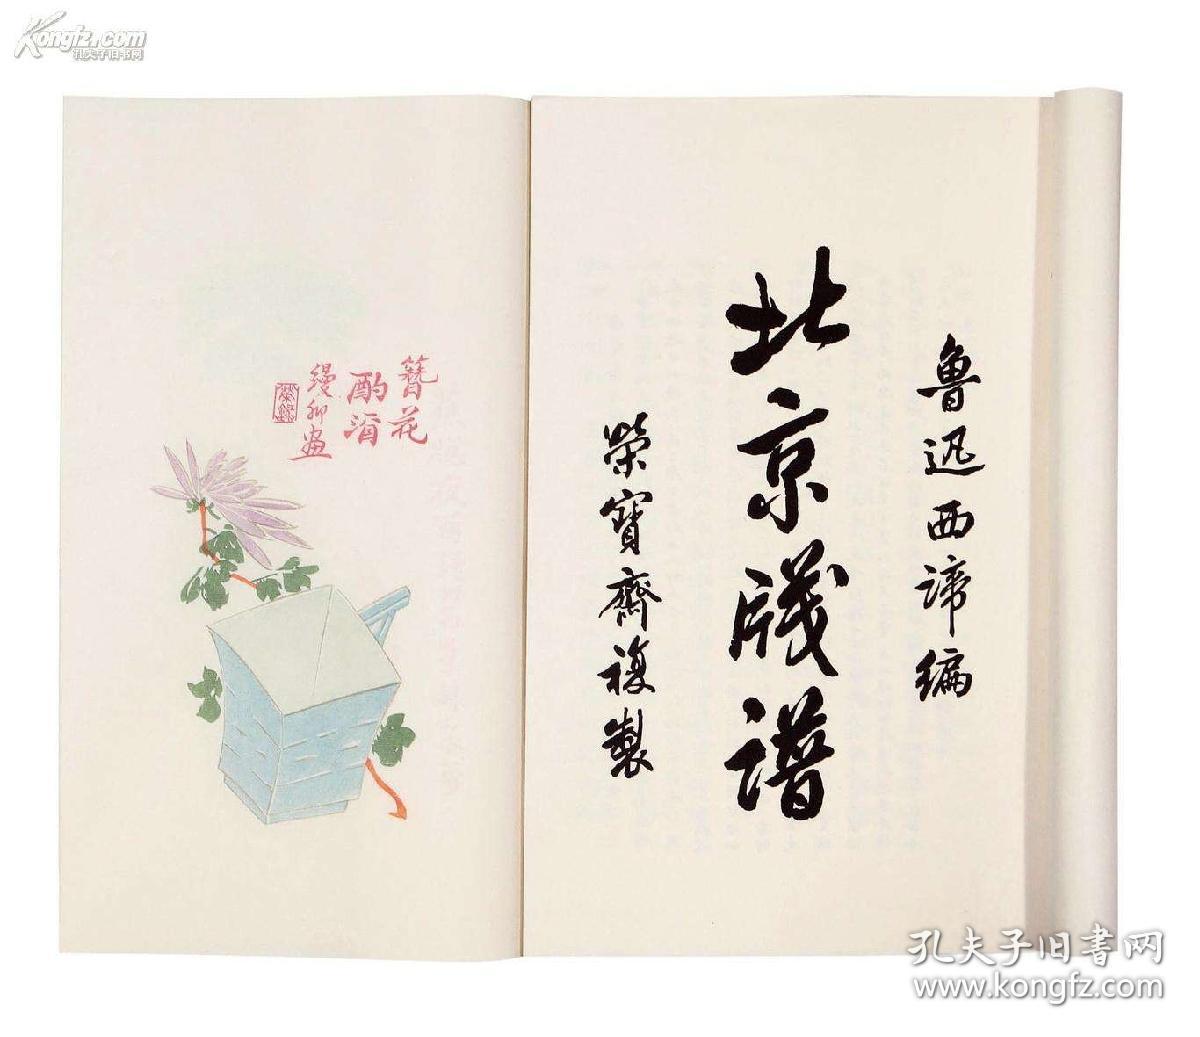 Kongfz.com
孔夫子旧书网
魯迅西諦編
北京牋譜
榮寶齋複製
簪花
酌酒
縵卿畫
孔夫子旧书网
www.kongfz.com